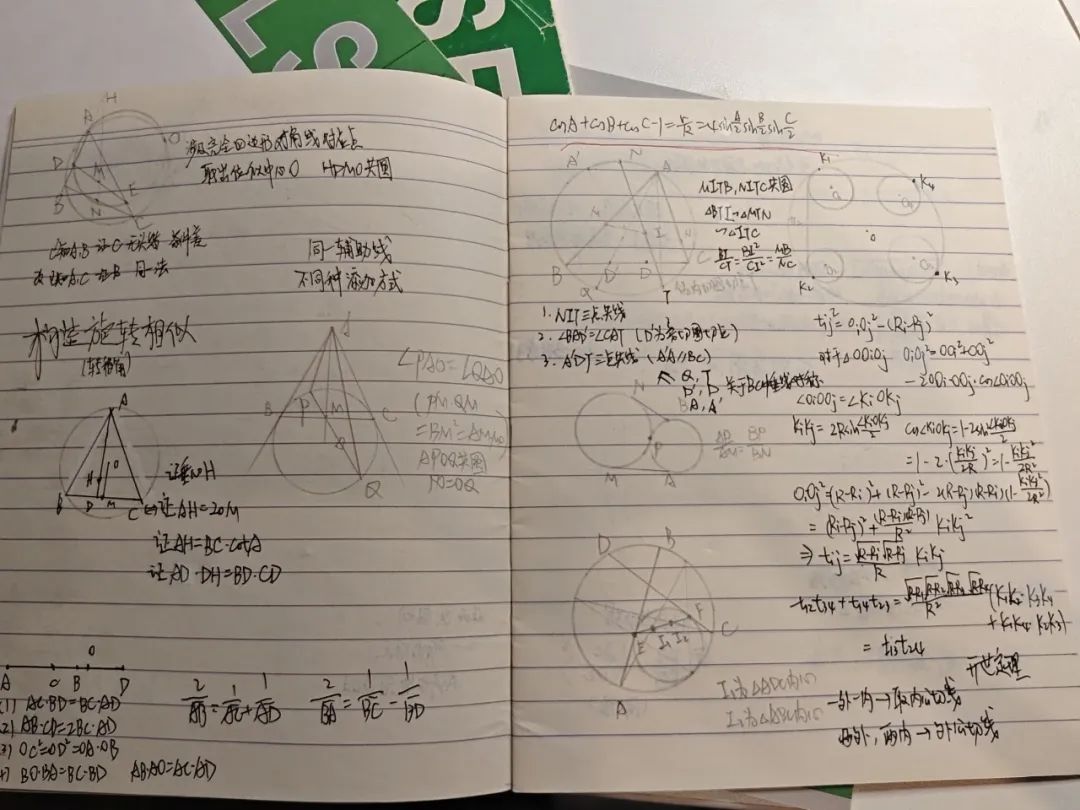 A H
O
D M
B N E
C
涉及完全四边形对角线
取出位似中心O HDMO共圆
同一辅助线
不同种添加方式
构造旋转相似
(转移角)
A
B P M C
Q
∠PAO=∠QAO
(PM·QM
=BM²=AM·MO)
APOQ共圆
PO=OQ
A
H O
B D M C
证AH=2OM
证AH=BC·cotA
证AD·DH=BD·CD
A C B O D
(1) AC·BD=BC·AD
(2) AB·CD=2BC·AD
(3) OC²=OD²=OA·OB
BO·BA=BC·BD AB·AO=AC·AD
2/AB=1/AC+1/AD 2/BA=1/BC-1/BD
cosA+cosB+cosC-1=r/R=4sinA/2 sinB/2 sinC/2
A' N A
M I
B D' D C
Q T
MITB, NITC共圆
△BTI∽△MTN
∽△ITC
BT/CT=BI²/CI²=MB/NC
1. NIT三点共线
2. ∠BAD'=∠CAT (D'为旁切圆切点)
3. A'DT三点共线 (A'A∥BC)
Q, T
D', D 关于BC中垂线对称
A, A'
K₁
K₄
O
K₂ K₃
tij²=OiOj²-(Ri-Rj)²
对于△OOiOj OiOj²=OOi²+OOj²
-2OOi·OOj·cos∠OiOOj
∠OiOOj=∠KiOKj
KiKj=2Rsin∠KiOKj/2 cos∠KiOKj=1-2sin²∠KiOKj/2
=1-2·(KiKj/2R)²=1-KiKj²/2R²
OiOj²=(R-Ri)²+(R-Rj)²-2(R-Rj)(R-Ri)(1-KiKj²/2R²)
=(Ri-Rj)²+(R-Ri)(R-Rj)/R² KiKj²
⇒ tij=√R-Ri√R-Rj/R KiKj
t12t34+t14t23=√R-R₁√R-R₂√R-R₃√R-R₄/R² (K₁K₂·K₃K₄
+K₁K₄·K₂K₃)
=t13t24
开世定理
N B
P
M A
AP/AM=BP/BN
D B
F
E I₁ I₂ C
A
I₁为△ADC内心
I₂为△ABC内心
一外一内→取内公切线
两外,两内→外公切线